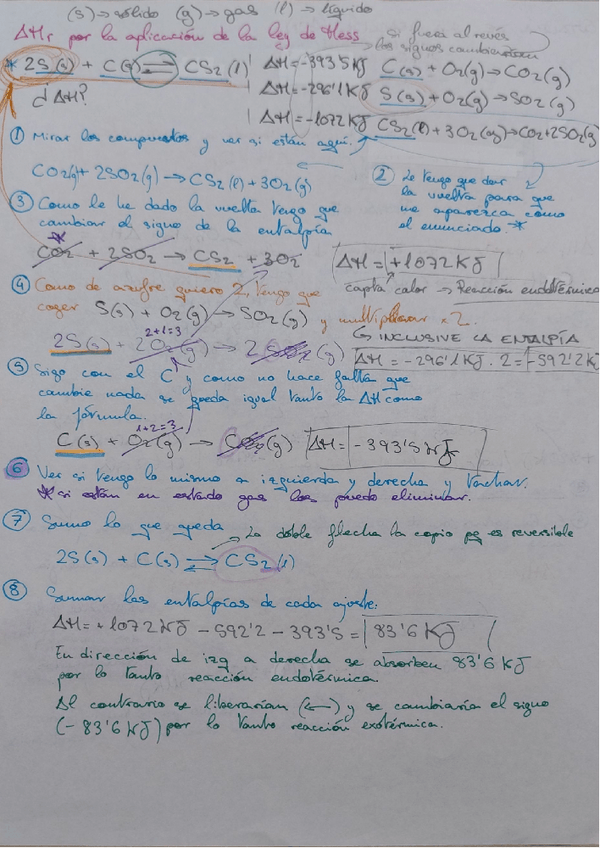 (s)→sólido (g)→gas (l)→líquido
ΔHr por la aplicación de la ley de Hess
si fuera al revés
los signos cambiarían
* 2S(s) + C(s) ⇌ CS₂(l)
¿ΔH?
ΔH=-393'5 kJ C(s) + O₂(g)→CO₂(g)
ΔH=-296'1 kJ S(s) + O₂(g)→SO₂(g)
ΔH=-1072 kJ CS₂(l) + 3O₂(g)→CO₂+2SO₂(g)
① Mirar los compuestos y ver si están aquí.
CO₂(g)+ 2SO₂(g)→CS₂(l)+3O₂(g)
② Le tengo que dar
la vuelta para que
me aparezca como
el enunciado *
③ Como le he dado la vuelta tengo que
cambiar el signo de la entalpía
*
CO₂ + 2SO₂ → CS₂ + 3O₂
ΔH=+1072 kJ
capta calor → Reacción endotérmica
④ Como de azufre quiero 2, tengo que
coger S(s) + O₂(g)→SO₂(g) y multiplicar × 2.
↳ INCLUSIVE LA ENTALPÍA
2+1=3
2S(s) + 2O₂(g)→ 2SO₂(g)
ΔH= -296'1 kJ · 2 = -592'2 kJ
⑤ Sigo con el C y como no hace falta que
cambie nada se queda igual tanto la ΔH como
la fórmula.
1+2=3
C(s) + O₂(g) → CO₂(g) ΔH= -393'5 kJ
⑥ Ver si tengo lo mismo a izquierda y derecha y tachar.
* si están en estado gas los puedo eliminar.
⑦ Sumo lo que queda
→ La doble flecha la copio pq es reversible
2S(s) + C(s) ⇌ CS₂(l)
⑧ Sumar las entalpías de cada ajuste.
ΔH= +1072 kJ - 592'2 - 393'5 = 83'6 kJ
En dirección de izq a derecha se absorben 83'6 kJ
por lo tanto reacción endotérmica.
Al contrario se liberarían (←) y se cambiaría el signo
(-83'6 kJ) por lo tanto reacción exotérmica.